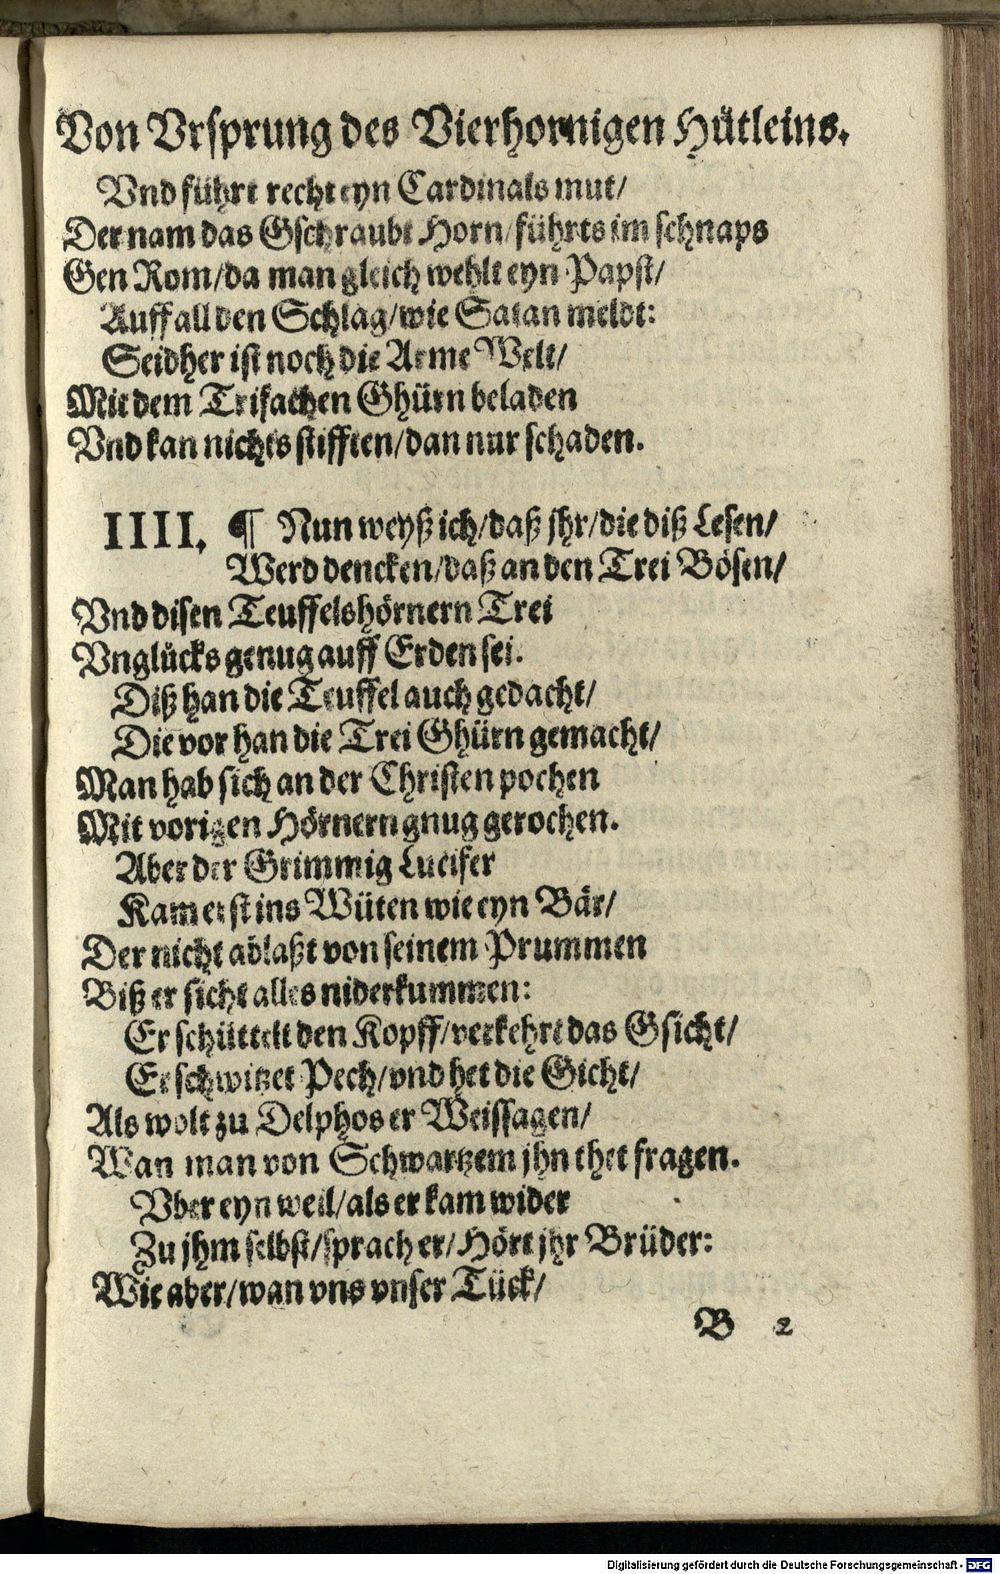 Von Vrsprung des Vierhornigen Hütleins.
Vnd führt recht eyn Cardinals mut/
Der nam das Gschraubt Horn/ führts im schnaps
Gen Rom/ da man gleich wehlt eyn Papst/
Auff all den Schlag/ wie Satan meldt:
Seidher ist noch die Arme Welt/
Mit dem Trifachen Ghürn beladen
Vnd kan nichts stifften/ dan nur schaden.
IIII. ¶ Nun weyß ich/ daß jhr/ die diß Lesen/
Werd dencken/ daß an den Trei Bösen/
Vnd disen Teuffelshörnern Trei
Vnglücks genug auff Erden sei.
Diß han die Teuffel auch gedacht/
Die vor han die Trei Ghürn gemacht/
Man hab sich an der Christen pochen
Mit vorigen Hörnern gnug gerochen.
Aber der Grimmig Lucifer
Kam erst ins Wüten wie eyn Bär/
Der nicht ablaßt von seinem Prummen
Biß er sicht alles niderkummen:
Er schüttelt den Kopff/ verkehrt das Gsicht/
Er schwitzet Pech/ vnd het die Gicht/
Als wolt zu Delphos er Weissagen/
Wan man von Schwartzem jhn thet fragen.
Vber eyn weil/ als er kam wider
Zu jhm selbst/ sprach er/ Hört jhr Brüder:
Wie aber/ wan vns vnser Tück/
B 2
Digitalisierung gefördert durch die Deutsche Forschungsgemeinschaft - DFG